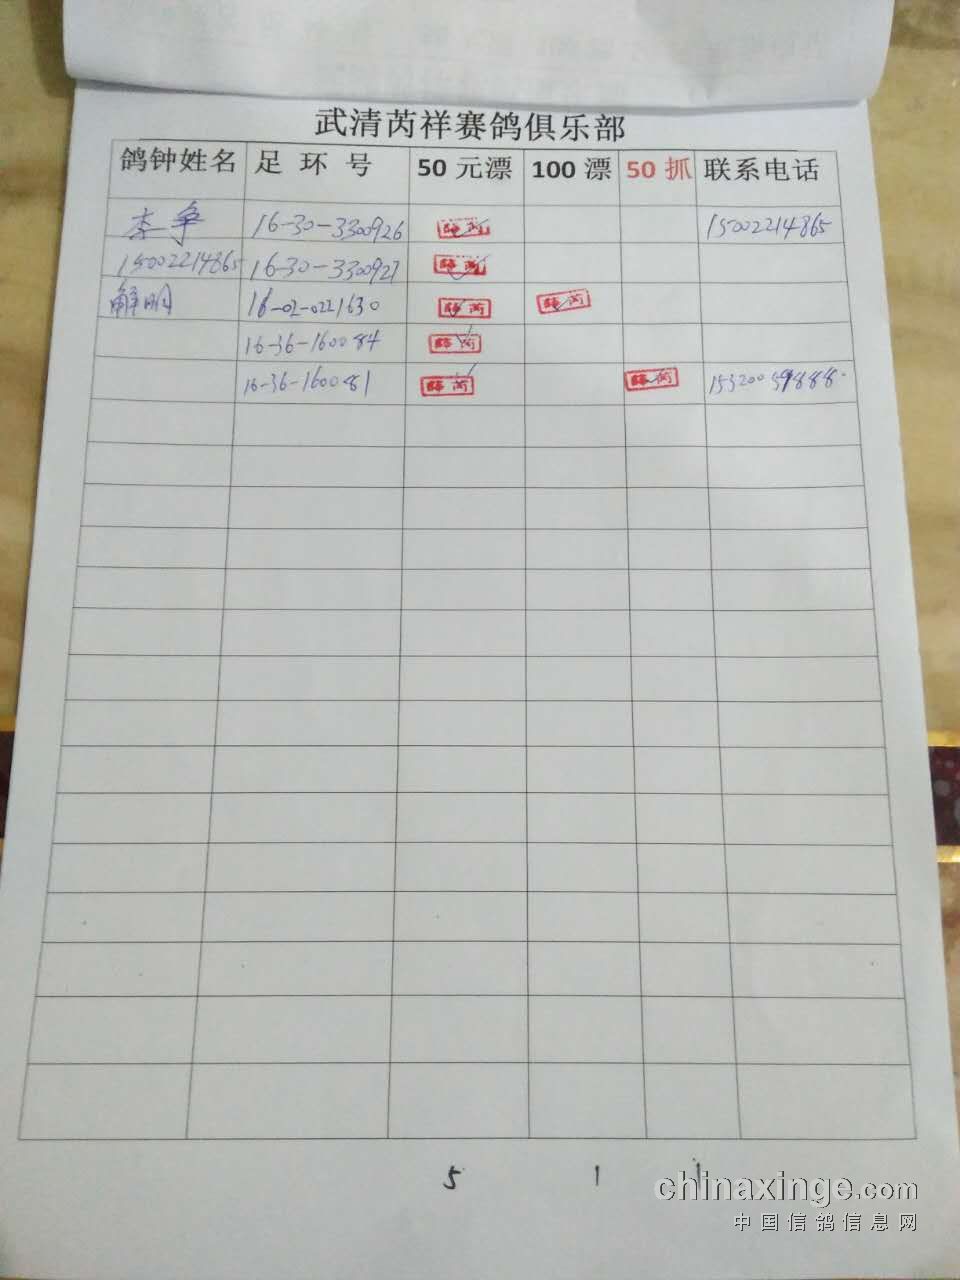 武清芮祥赛鸽俱乐部
鸽钟姓名 足 环 号 50 元漂 100 漂 50 抓 联系电话
李争 16-30-3300926 15002214865
15002214865 16-30-3300927
解明 16-02-0221630
16-36-160084
16-36-160081 15320059888
5 1 1
chinaxinge.com
中国信鸽信息网